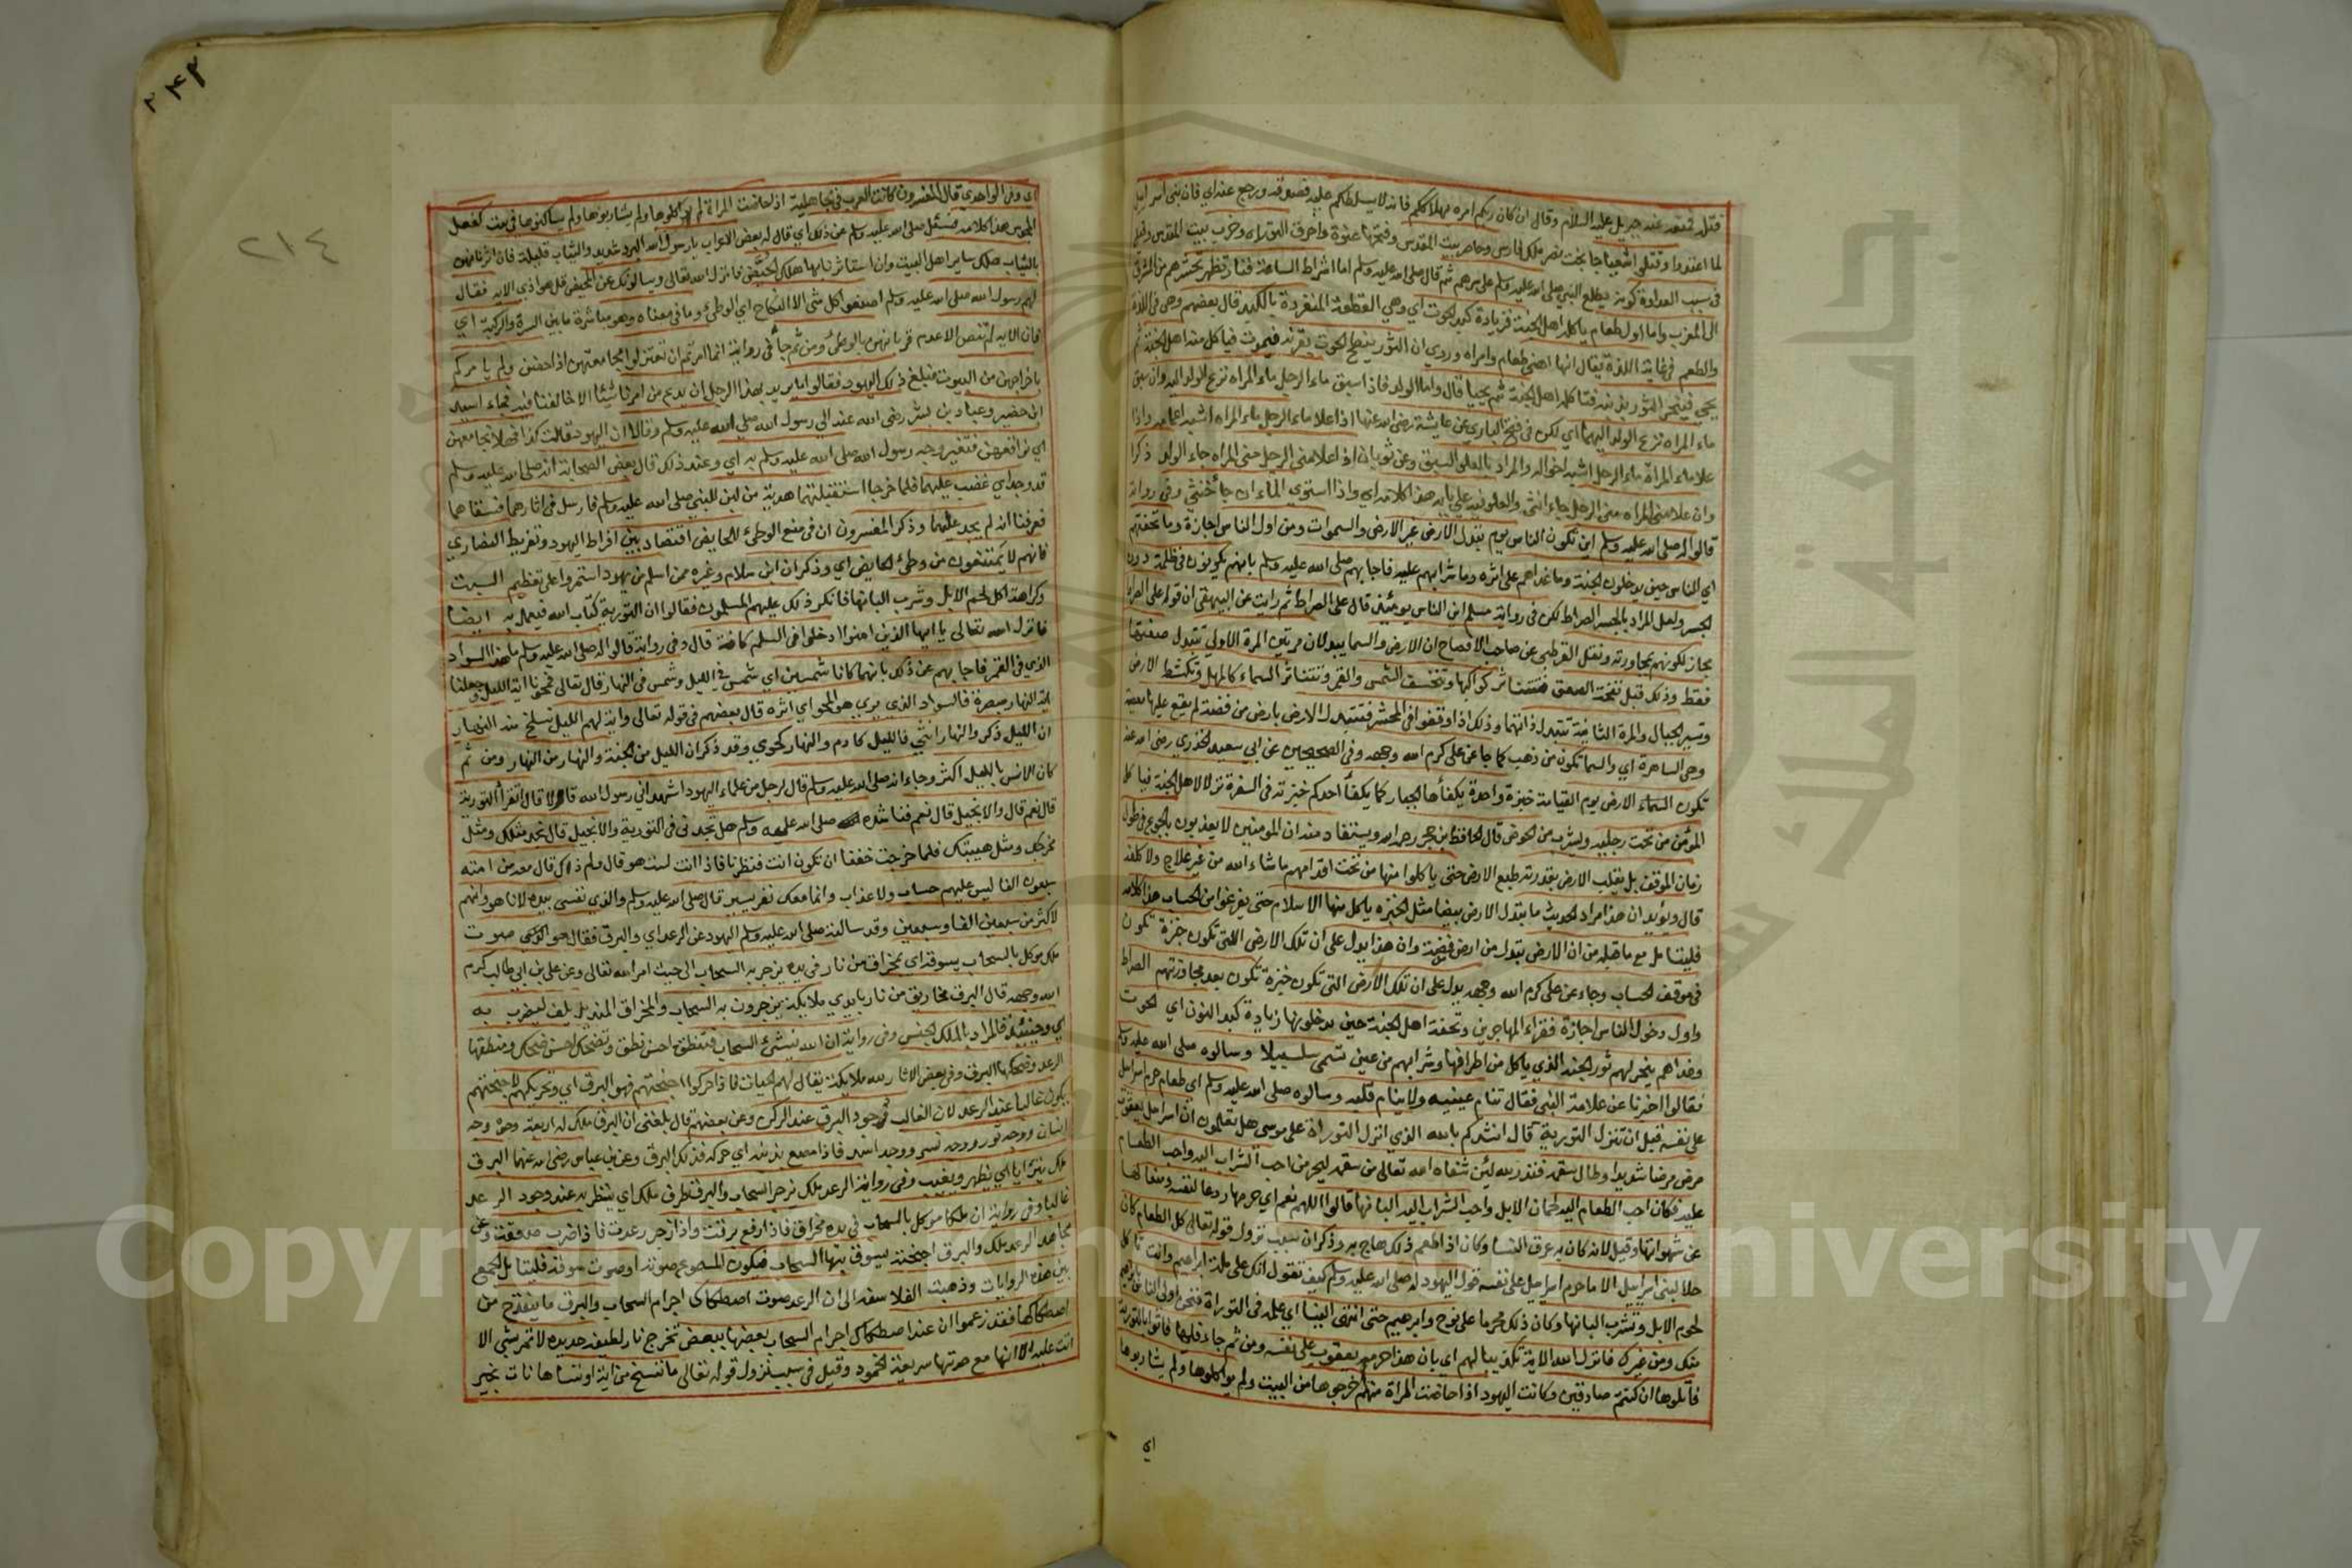 قتله تمنعه عنه جبريل عليه السلام وقال ان كان ربكم امره بهلاككم فانه لا يسلطكم عليه فصدقه ورجع عنه اي فان بني اسرائيل
لما اعتدوا وقتلوا شعيا جا بخت نصر ملك فارس وحاصر بيت المقدس وفتحها عنوة واحرق التوراة وخرب بيت المقدس
في سبب العداوة كونه يطلع النبي صلى الله عليه وسلم على سرهم ثم قال صلى الله عليه وسلم اما اشراط الساعة فنار تظهر تحشرهم من المشرق
الى المغرب واما اول طعام ياكله اهل الجنة فزيادة كبد الحوت اي وهي القطعة المنفردة بالكبد قال بعضهم وهي في اللذة
والطعم في غاية اللذة يقال انها اهنى طعام وامراه وروي ان الثور ينطح الحوت بقرنه فيموت فياكل منه اهل الجنة ثم
يحيى فينحر الثور بذنبه فتاكله اهل الجنة ثم يحيا قال واما الولد فاذا سبق ماء الرجل ماء المراه نزع الولد اليه وان سبق
ماء المراه نزع الولد اليها اي لكن في فتح الباري عن عايشة رضي الله عنها اذا علا ماء الرجل ماء المراه اشبه اعمامه واذا
علا ماء المراة ماء الرجل اشبه اخواله والمراد بالعلو السبق وعن ثوبان اذا علا مني الرجل مني المراه جاء الولد ذكرا
وان علا مني المراه مني الرجل جاء انثى والعلو فيه على بابه هذا كلامه اي واذا استوي الماءان جا خنثى وفي رواية
قالوا له صلى الله عليه وسلم اين تكون الناس يوم تبدل الارض غير الارض والسموات ومن اول الناس اجازة وما تحفتهم
اي الناس حين يدخلون الجنة وما غداهم على اثره وما شرابهم عليه فاجابهم صلى الله عليه وسلم بانهم يكونون في ظلمة دون
الجسر ولعل المراد بالجسر الصراط لكن في رواية مسلم اين الناس يومئذ قال على الصراط ثم رايت عن البيهقي ان قوله على الصراط
مجاز لكونهم بمجاورته ونقل القرطبي عن صاحب الافصاح ان الارض والسما يبدلان مرتين المرة الاولى تتبدل صفتها
فقط وذلك قبل نفخة الصعق فتتناثر كواكبها وتخسف الشمس والقمر وتتناثر السماء كالمهل وتكشط الارض
وتسير الجبال والمرة الثانية تتبدل ذاتهما وذلك اذا وقفوا في المحشر فتتبدل الارض بارض من فضة لم يقع عليها معصية
وهي الساهرة اي والسما تكون من ذهب كما جا عن علي كرم الله وجهه وفي الصحيحين عن ابي سعيد الخدري رضي الله عنه
تكون السماء الارض يوم القيامة خبزة واحدة يكفأها الجبار كما يكفأ احدكم خبزته في السفرة نزلا لاهل الجنة فياكل
المؤمن من تحت رجليه ويشرب من الحوض قال الحافظ بن حجر رحمه الله ويستفاد منه ان المومنين لا يعذبون بالجوع في طول
زمان الموقف بل يقلب الارض بقدرته طبع الارض حتى ياكلوا منها من تحت اقدامهم ماشاء الله من غير علاج ولا كلفة
قال ويؤيد ان هذا مراد الحديث ما بتبدل الارض بيضا مثل الخبزه ياكل منها الاسلام حتى يفرغوا من الحساب هذا كلامه
فليتامل مع ماقبله من ان الارض تبدل من ارض فضة وان هذا يدل على ان تلك الارض اللتي تكون خبزة تكون
في موقف الحساب وجاء عن علي كرم الله وجهه يدل على ان تلك الارض التي تكون خبزة تكون بعد مجاوزتهم الصراط
واول دخول الناس اجازة فقراء المهاجرين وتحفة اهل الجنة حين يدخلونها زيادة كبد النون اي الحوت
وغداهم ينحر لهم ثور الجنة الذي ياكل من اطرافها وشرابهم من عين تسمى سلسبيلا وسالوه صلى الله عليه وسلم
فقالوا اخبرنا عن علامة النبي فقال تنام عينيه ولا ينام قلبه وسالوه صلى الله عليه وسلم اي طعام حرم اسراييل
على نفسه قبل ان تنزل التورية قال انشدكم بالله الذي انزل التوراة على موسى هل تعلمون ان اسراييل يعقوب
مرض مرضا شديدا وطال سقمه فنذر لله لئن شفاه الله تعالى من سقمه ليحرمن احب الشراب اليه واحب الطعام
عليه فكان احب الطعام اليه لحمان الابل واحب الشراب اليه البانها قالوا اللهم نعم اي حرمها ردعا لنفسه ومنعا لها
عن شهواتها وقيل لانه كان به عرق النسا وكان اذا اطعم ذلك هاج به وذكر ان سبب نزول قوله تعالى كل الطعام كان
حلا لبني اسراييل الا ما حرم اسراييل على نفسه قول اليهود له صلى الله عليه وسلم كيف تقول انك على ملة ابراهيم وانت تاكل
لحوم الابل وتشرب البانها وكان ذلك محرما على نوح وابرهيم حتى انتهى الينا اي علمه في التوراة فنحن اولى الناس بابراهيم
منك ومن غيرك فانزل الله الاية تكذيبا لهم اي بان هذا حرمه يعقوب على نفسه ومن ثم جاء فليها فاتوا بالتورية
فاتلوها ان كنتم صادقين وكانت اليهود اذا حاضت المراة منهم اخرجوها من البيت ولم يواكلوها ولم يشاربوها
اي
٢٤٣
٢١٤
اي وفي الواحدي قال المفسرون كانت العرب في الجاهلية اذا حاضت المراة لم يواكلوها ولم يشاربوها ولم يساكنوها في بيت كفعل
المجوس هذا كلامه فسئل صلى الله عليه وسلم عن ذلك اي قال له بعض الاعراب يا رسول الله البرد شديد والثياب قليلة فان اثرناهن
بالثياب هلك ساير اهل البيت وان استاثرنا بها هلكت الحيض فانزل الله تعالى ويسالونك عن المحيض قل هو اذي الاية فقال
لهم رسول الله صلى الله عليه وسلم اصنعوا كل شي الا النكاح اي الوطئ وما في معناه وهو مباشرة ما بين السرة والركبة اي
فان الاية لم تنص الا عدم قربانهن بالوطئ ومن ثم جا في رواية انما امرتم ان تعتزلوا مجامعتهن اذا حضن ولم يامركم
باخراجهن من البيوت فبلغ ذلك اليهود فقالوا ما يريد هذا الرجل ان يدع من امرنا شيئا الا خالفنا فيه فجاء اسيد
ابن حضير وعباد بن بشر رضي الله عنه الي رسول الله صلى الله عليه وسلم وقالا ان اليهود قالت كذا فهلا نجامعهن
اي نوافقهن فتغير وجه رسول الله صلى الله عليه وسلم به اي وعند ذلك قال بعض الصحابة انه صلى الله عليه وسلم
قد وجد اي غضب عليهما فلما خرجا استقبلتهما هدية من لبن للنبي صلى الله عليه وسلم فارسل في اثارهما فسقاهما
فعرفنا انه لم يجد عليهما وذكر المفسرون ان في منع الوطئ للحايض اقتصاد بين افراط اليهود وتفريط النصاري
فانهم لا يمتنعون من وطئ الحايض اي وذكر ان ابن سلام وغيره ممن اسلم من يهود استمروا على تعظيم السبت
وكراهة اكل لحم الابل وشرب البانها فانكر ذلك عليهم المسلمون فقالوا ان التورية كتاب الله فيعمل به ايضا
فانزل الله تعالى يا ايها الذين امنوا ادخلوا في السلم كافة قال وفي رواية قالوا له صلى الله عليه وسلم ما هذا السواد
الذي في القمر فاجابهم عن ذلك بانهما كانا شمسين اي شمس في الليل وشمس في النهار قال تعالى فمحونا اية الليل وجعلنا
اية النهار مبصرة فالسواد الذي يرى هو المحو اي اثره قال بعضهم في قوله تعالى واية لهم الليل نسلخ منه النهار
ان الليل ذكر والنهار انثي فالليل كادم والنهار كحوي وقد ذكر ان الليل من الجنة والنهار من النهار ومن ثم
كان الانس بالليل اكثر وجاء انه صلى الله عليه وسلم قال لرجل من علماء اليهود اشهد اني رسول الله قال لا قال اتقرأ التورية
قال نعم قال والانجيل قال نعم فناشده صلى الله عليه وسلم هل تجدني في التورية والانجيل قال نجد مثلك ومثل
مخرجك ومثل هيبتك فلما خرجت خفنا ان تكون انت فنظرنا فاذا انت لست هو قال ولم ذاك قال معه من امته
سبعون الفا ليس عليهم حساب ولا عذاب وانما معك نفر يسير قال صلى الله عليه وسلم والذي نفسي بيده لانا هو وانهم
لاكثر من سبعين الفا وسبعين وقد سالته صلى الله عليه وسلم اليهود عن الرعد اي والبرق فقال هو صوت
ملك موكل بالسحاب يسوقه اي بمخراق من نار في يده يزجر به السحاب الى حيث امر الله تعالى وعن علي بن ابي طالب كرم
الله وجهه قال البرق مخاريق من نار بايدي ملايكة يزجرون به السحاب والمخراق المنديل يلف ليضرب به
اي وحينئذ فالمراد بالملك الجنس وفي رواية ان الله ينشئ السحاب فتنطق احسن نطق وتضحك احسن ضحك ومنطقها
الرعد وضحكها البرق وفي بعض الاثار لله ملايكة يقال لهم الحيات فاذا حركوا اجنحتهم فهو البرق اي وتحريكهم لاجنحتهم
يكون غالبا عند الرعد لان الغالب وجود البرق عند الرعد وعن بعضهم قال بلغني ان البرق ملك له اربعة وجوه وجه
انسان ووجه ثور ووجه نسر ووجه اسد فاذا مصع بذنبه اي حركه فذلك البرق وعن بن عباس رضي الله عنهما البرق
ملك يترايا اي يظهر ويغيب وفي رواية الرعد ملك يزجر السحاب والبرق طرف ملك اي ينظر به عند وجود الرعد
غالبا وفي رواية ان ملكا موكل بالسحاب في يده مخراق فاذا رفع برقت واذا زجر رعدت فاذا ضرب صعقت وعن
مجاهد الرعد ملك والبرق اجنحته يسوق بها السحاب فيكون المسموع صوته او صوت سوقه فليتامل الجمع
بين هذه الروايات وذهبت الفلاسفه الى ان الرعد صوت اصطكاك اجرام السحاب والبرق ما ينقدح من
اصطكاكها فقد زعموا ان عند اصطكاك اجرام السحاب بعضها ببعض تخرج نار لطيفة حديده لا تمر بشي الا
اتت عليه الا انها مع حدتها سريعة الخمود وقيل في سبب نزول قوله تعالى ما ننسخ من اية او ننساها نات بخير
Copyright © King Saud University
جامعة الملك سعود